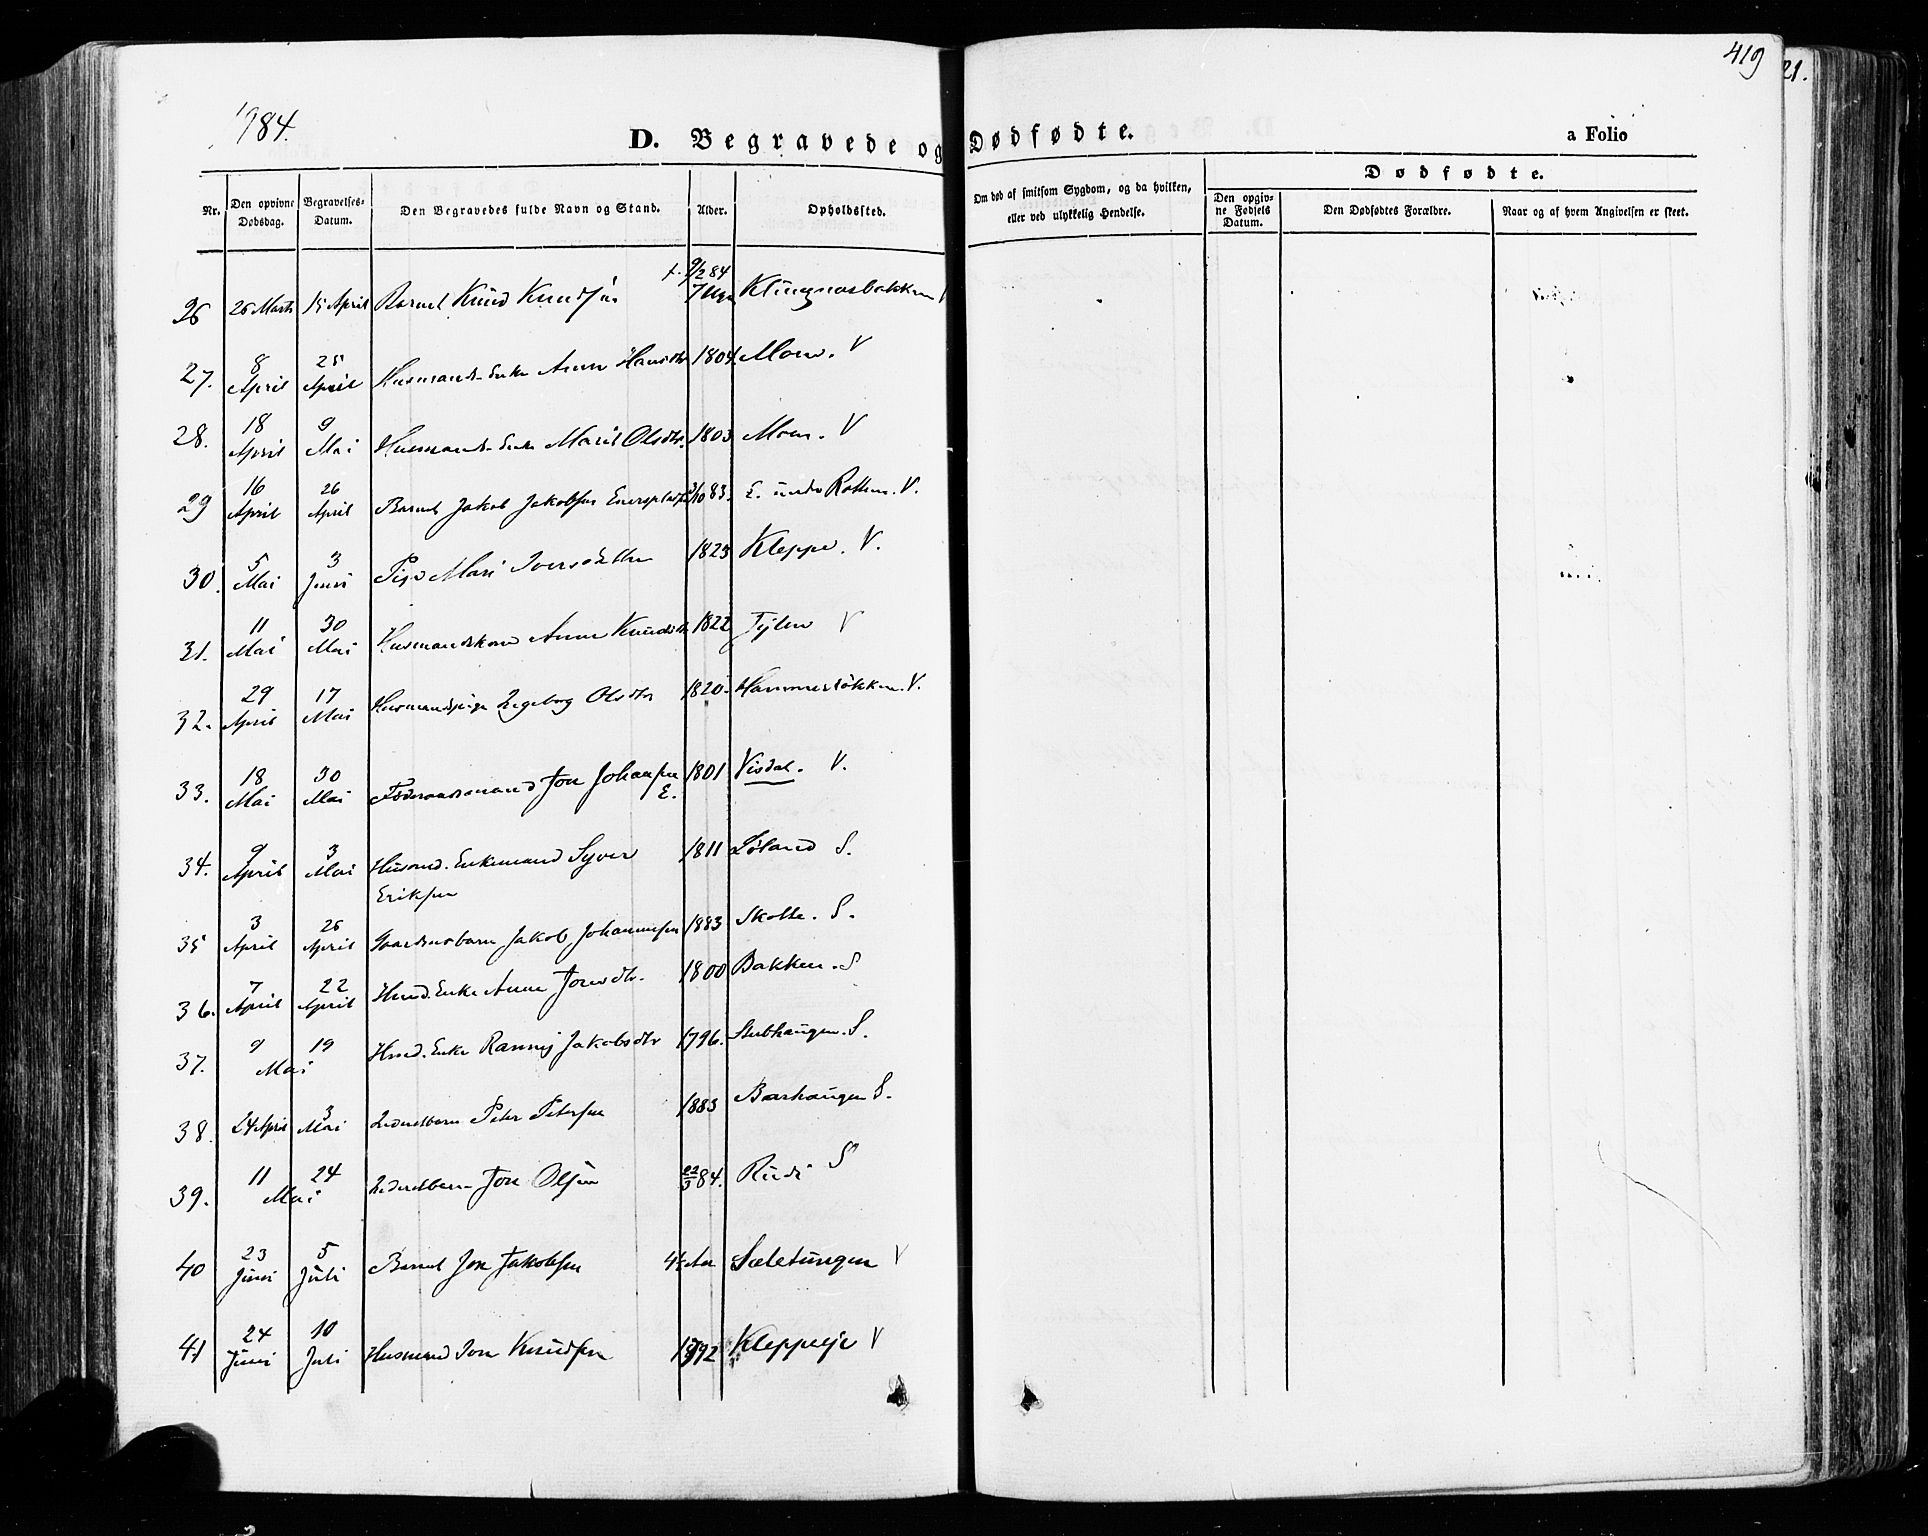 419
21.
1884.
D. Begravede og Dødfødte.
a Folio
Nr.
Den opgivne Dødsdag.
Begravelses-Datum.
Den Begravedes fulde Navn og Stand.
Alder.
Opholdssted.
Om død af smitsom Sygdom, og da hvilken, eller ved ulykkelig Hendelse.
Dødfødte.
Den opgivne Fødsels Datum.
Den Dødfødtes Forældre.
Naar og af hvem Angivelsen er skeet.
26 26 Marts 15 April Barnet Knud Knudsen f. 9/2 84 7 Uger
27. 8 April 25 April Husmands-Enke Anne Hansdtr 1804. Moen. V
28. 18 April 9 Mai Husmands-Enke Marit Olsdtr. 1803 Moen. V
29 16 April 26 April Barnet Jakob Jakobsen 83. E. under V.
30. 5 Mai 3 Juni Pige Mari Iversdatter 1823 Kleppe. V.
31. 11 Mai 30 Mai Husmandskone Anne Knudsdtr 1822 V
32. 29 April 17 Mai Husmandspige Ingeborg Olsdtr 1820 V.
33. 18 Mai 30 Mai Føderaadsmand Jon Johansen E. 1801 Visdal. V.
34. 9 April 3 Mai Husmd. Enkemand Syver Eriksen 1811 Løland S.
35 3 April 26 April Gaardmsbarn Jakob Johannessen 1883 Skotte. S.
36. 7 April 22 April Husmd. Enke Anne Jonsdtr. 1800 Bakken. S
37. 9 19 Mai Husmd. Enke Rannei Jakobsdtr 1796. Stubhaugen. S.
38. 24 April 3 Mai Inderstbarn Peter Petersen 1883 Barhaugen S.
39. 11 24 Mai Inderstbarn Jon Olsen 22/3 84. Rudi S
40 23 Juni 5 Juli Barnet Jon Jakobsen Sæletungen V
41 24 Juni 10 Juli Husmand Jon Knudsen 1792 Kleppeeje V